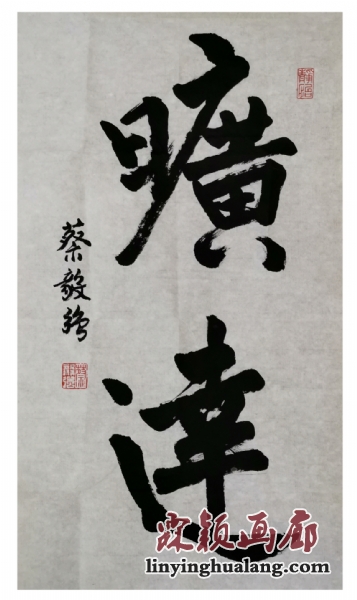 曠達
蔡毅強
霖颖画廊
linyinghualang.com